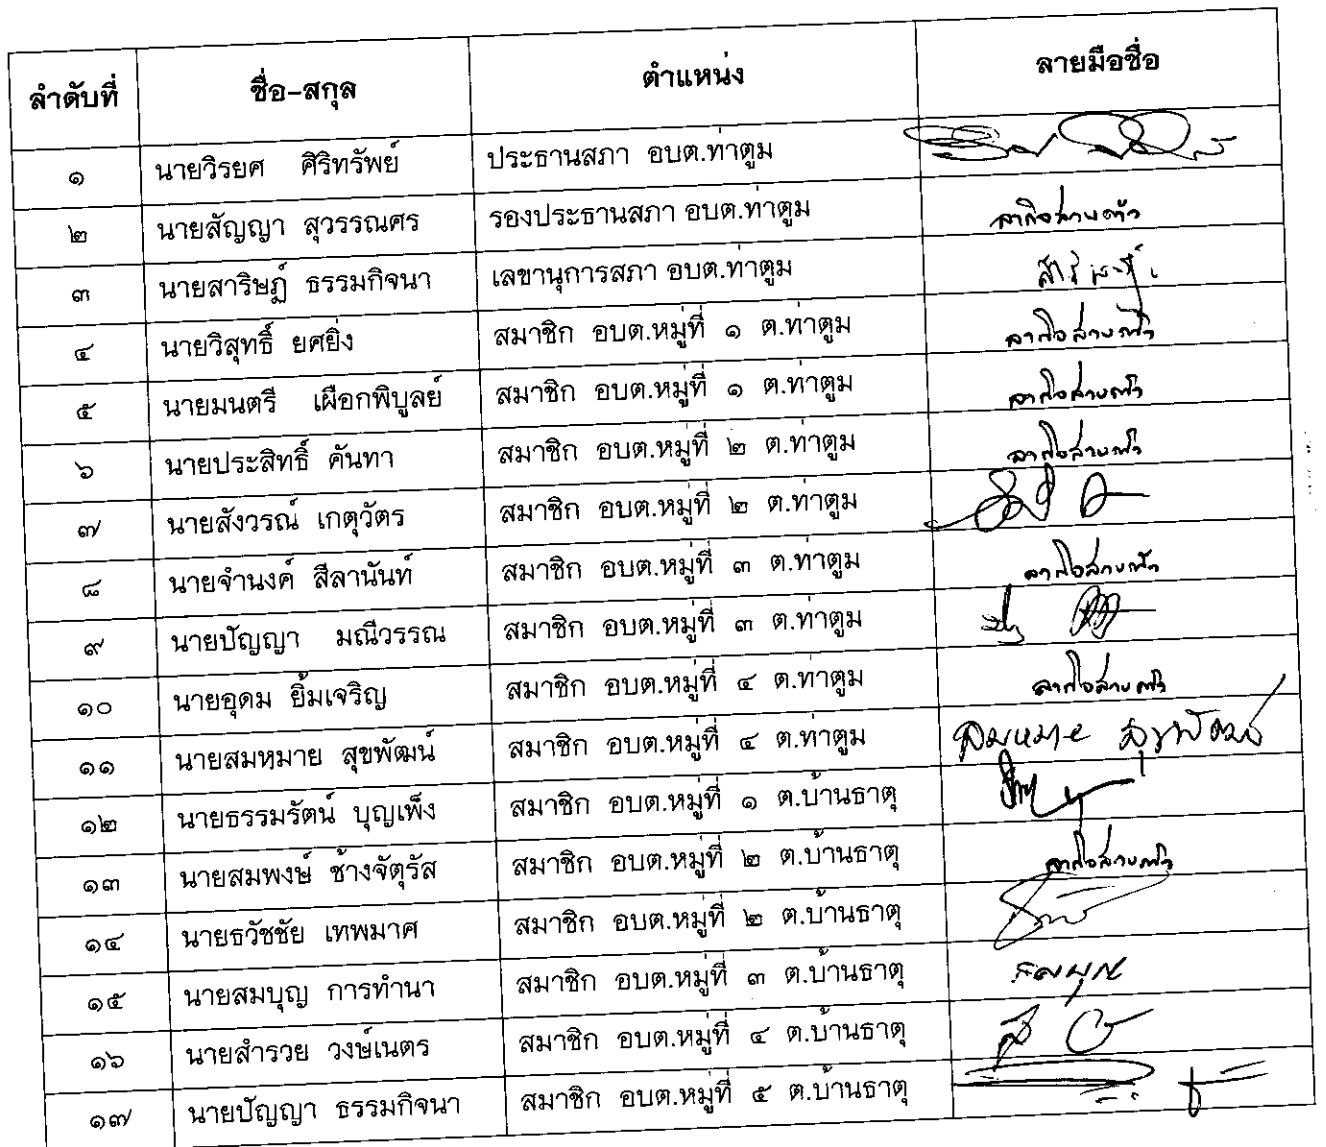 ลำดับที่ ชื่อ-สกุล ตำแหน่ง ลายมือชื่อ
๑ นายวิรยศ ศิริทรัพย์ ประธานสภา อบต.ท่าตูม
๒ นายสัญญา สุวรรณศร รองประธานสภา อบต.ท่าตูม
๓ นายสาริษฏ์ ธรรมกิจนา เลขานุการสภา อบต.ท่าตูม
๔ นายวิสุทธิ์ ยศยิ่ง สมาชิก อบต.หมู่ที่ ๑ ต.ท่าตูม
๕ นายมนตรี เผือกพิบูลย์ สมาชิก อบต.หมู่ที่ ๑ ต.ท่าตูม
๖ นายประสิทธิ์ คันทา สมาชิก อบต.หมู่ที่ ๒ ต.ท่าตูม
๗ นายสังวรณ์ เกตุวัตร สมาชิก อบต.หมู่ที่ ๒ ต.ท่าตูม
๘ นายจำนงค์ สีลานันท์ สมาชิก อบต.หมู่ที่ ๓ ต.ท่าตูม
๙ นายปัญญา มณีวรรณ สมาชิก อบต.หมู่ที่ ๓ ต.ท่าตูม
๑๐ นายอุดม ยิ้มเจริญ สมาชิก อบต.หมู่ที่ ๔ ต.ท่าตูม
๑๑ นายสมหมาย สุขพัฒน์ สมาชิก อบต.หมู่ที่ ๔ ต.ท่าตูม สมหมาย สุขพัฒน์
๑๒ นายธรรมรัตน์ บุญเพ็ง สมาชิก อบต.หมู่ที่ ๑ ต.บ้านธาตุ
๑๓ นายสมพงษ์ ช้างจัตุรัส สมาชิก อบต.หมู่ที่ ๒ ต.บ้านธาตุ
๑๔ นายธวัชชัย เทพมาศ สมาชิก อบต.หมู่ที่ ๒ ต.บ้านธาตุ
๑๕ นายสมบุญ การทำนา สมาชิก อบต.หมู่ที่ ๓ ต.บ้านธาตุ สมบุญ
๑๖ นายสำรวย วงษ์เนตร สมาชิก อบต.หมู่ที่ ๔ ต.บ้านธาตุ
๑๗ นายปัญญา ธรรมกิจนา สมาชิก อบต.หมู่ที่ ๕ ต.บ้านธาตุ